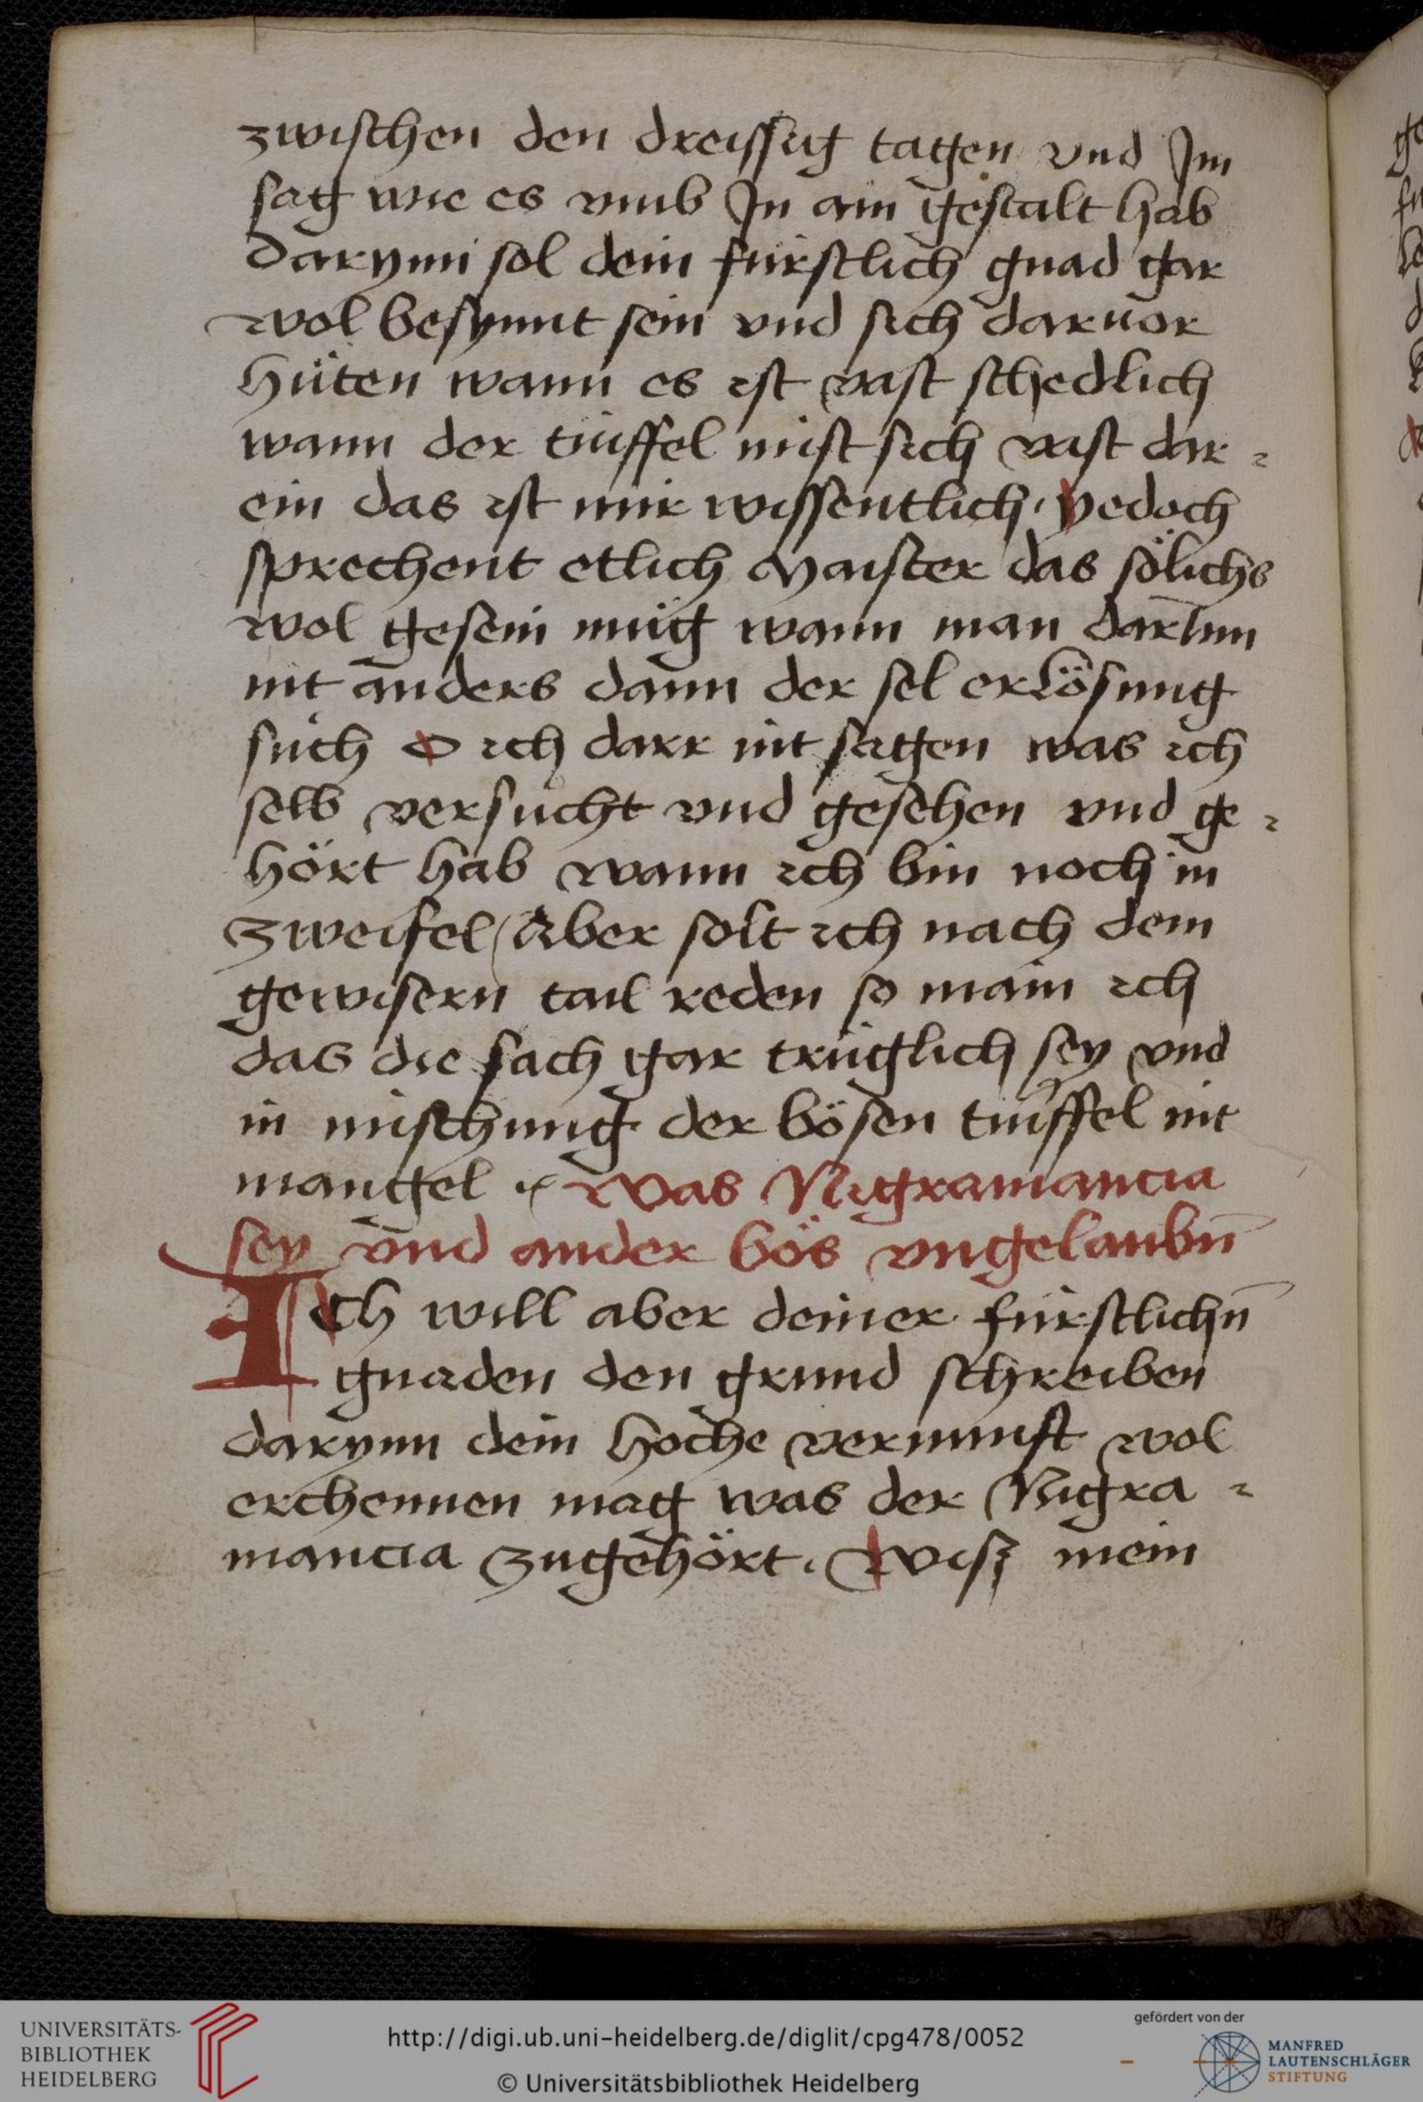 zwischen den dreissig tagen vnd Im
sag wie es vmb In ain gestalt hab
darynn sol dein fürstlich gnad gar
wol besynnt sein vnd sich daruor
hüten wann es ist vast schedlich
wann der tüffel mist sich vast dar=
ein das ist mir wissentlich. yedoch
sprechent etlich Maister das sölichs
wol gesein müg wann man darInn
nit anders dann der sel erlösung
such O ich darr nit sagen was ich
selb versucht vnd gesehen vnd ge=
hört hab wann ich bin noch in
zweifel Aber solt ich nach dem
gewisern tail reden so main ich
das die sach gar trüglich sey vnd
in mischung der bösen tüffel nit
mangel Was Nigramancia
sey vnd ander bös vngelaubn̄
ICh will aber deiner fürstlichn̄
gnaden den grund schreiben
darynn dein hoche vernunft wol
erchennen mag was der Nigra=
mancia zugehört. Wisz mein
UNIVERSITÄTS-
BIBLIOTHEK
HEIDELBERG
http://digi.ub.uni-heidelberg.de/diglit/cpg478/0052
© Universitätsbibliothek Heidelberg
gefördert von der
MANFRED
LAUTENSCHLÄGER
STIFTUNG